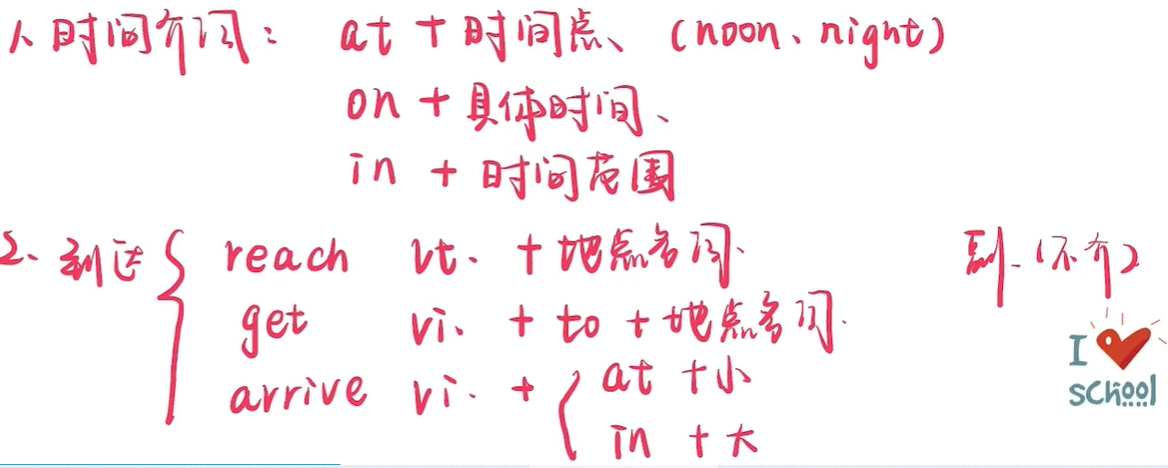 1、时间介词： at + 时间点、（noon、night）
on + 具体时间、
in + 时间范围
2、到达 { reach vt. + 地点名词. 副.（不介）
get vi. + to + 地点名词.
arrive vi. + { at + 小
in + 大
I
SCHOOL